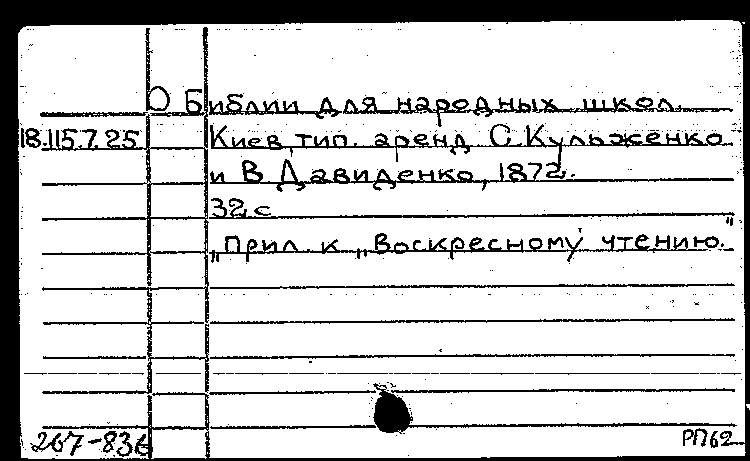 О Библии для народных школ.
18.115.7.25 Киев, тип. аренд С. Кульженко
и В. Давиденко, 1872.
32 с
„Прил к „Воскресному чтению."
267-836 РП62